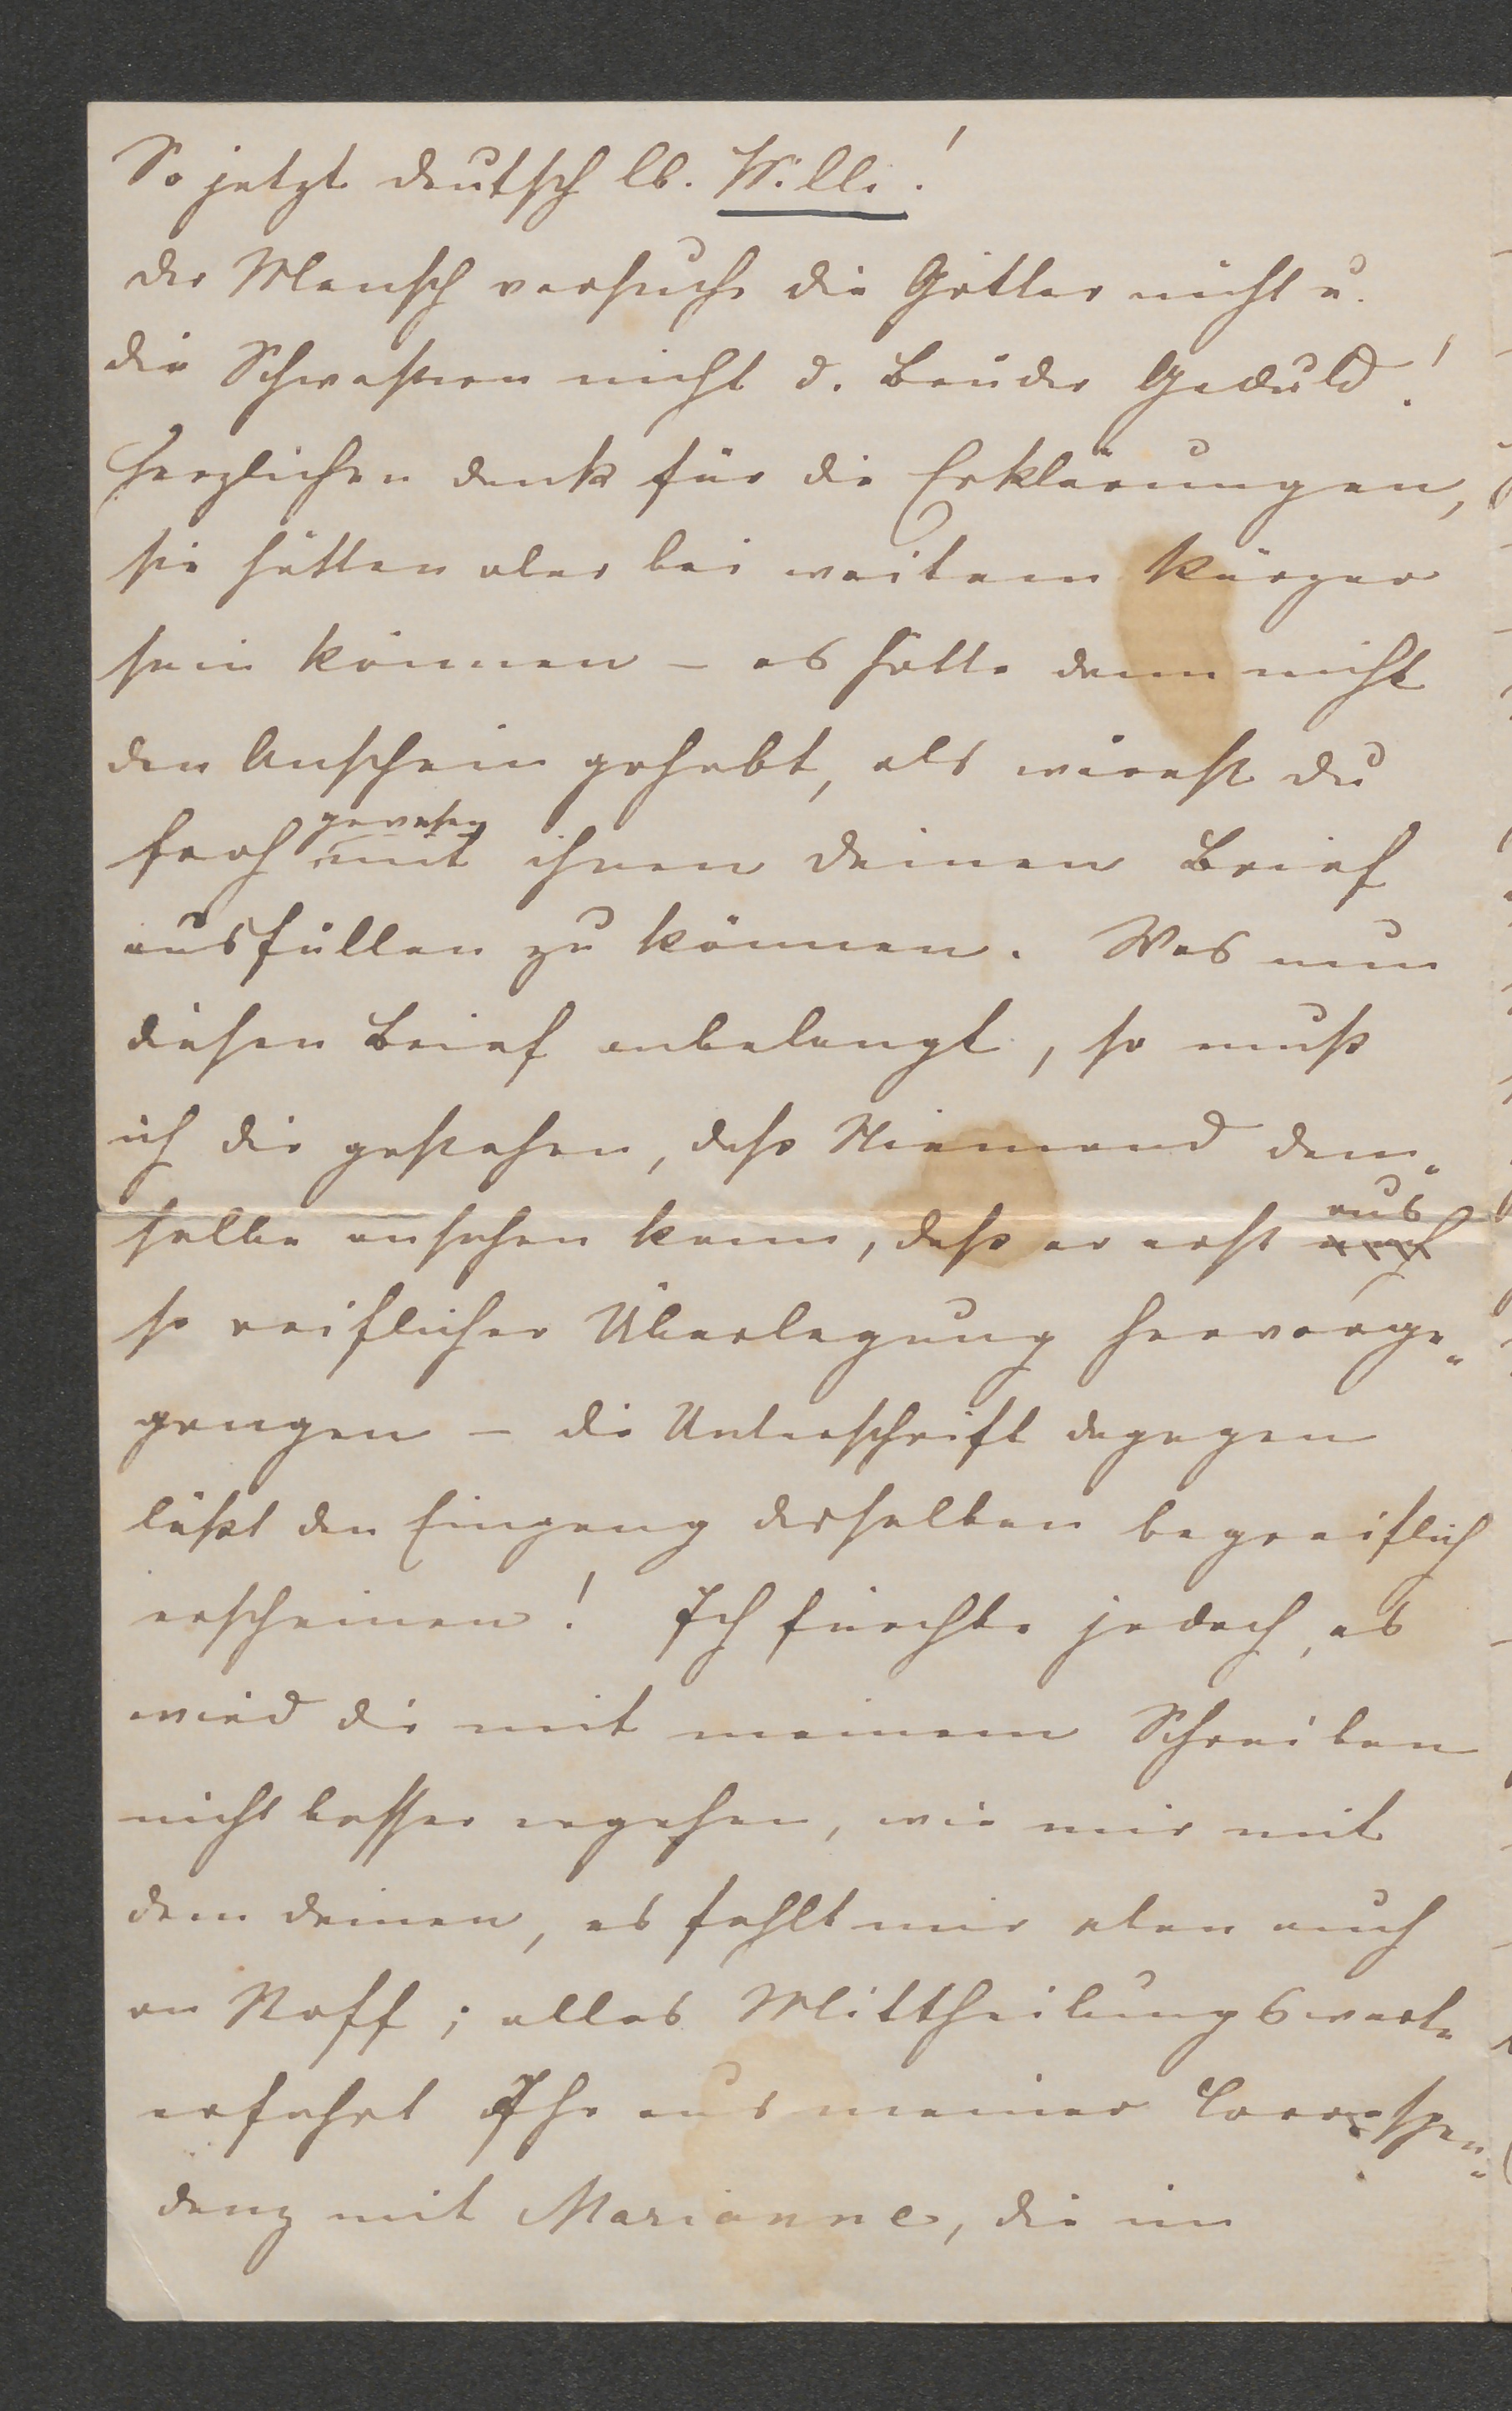 So jetzt deutsch lb. Willi!
der Mensch versuche die Götter nicht u.
die Schwestern nicht d. Brüder Geduld!
Herzlichen dank für die Erklärungen,
sie hätten aber bei weitem kürzer
sein können – es hätte denn nicht
den Anschein gehabt, als wärest du
froh gewesen mit ihnen deinen Brief
ausfüllen zu können. Was nun
diesen Brief anbelangt, so muß
ich dir gestehen, daß Niemand dem-
selben ansehen kann, daß er erst nach aus
so reiflicher Überlegung hervorge-
gangen – die Unterschrift dagegen
läßt den Eingang desselben begreiflich
erscheinen! Ich fürchte jedoch, es
wird dir mit meinem Schreiben
nicht besser ergehen, wie mir mit
dem deinen, es fehlt mir eben auch
an Stoff; alles Mittheilungswerte
erfahrt Ihr aus meiner Correspon-
denz mit Marianne, die im